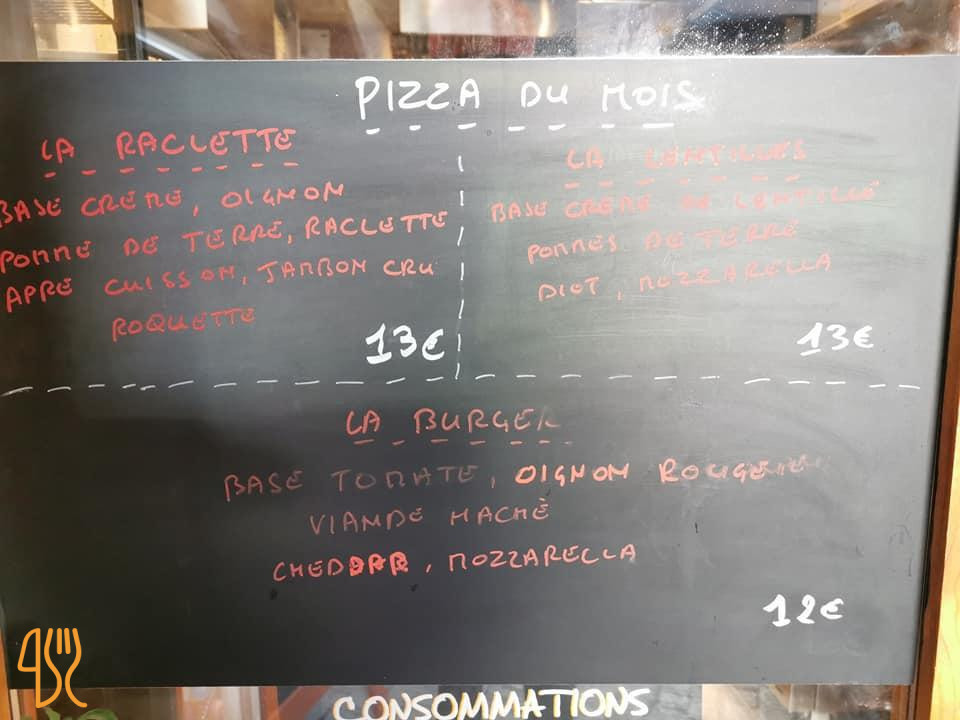 PIZZA DU MOIS
LA RACLETTE
BASE CREME, OIGNON
POMME DE TERRE, RACLETTE
APRE CUISSON, JAMBON CRU
ROQUETTE
13€
LA LENTILLES
BASE CREME DE LENTILLE
POMMES DE TERRE
DIOT, MOZZARELLA
13€
LA BURGER
BASE TOMATE, OIGNON ROUGE
VIANDE HACHÈ
CHEDDAR, MOZZARELLA
12€
CONSOMMATIONS